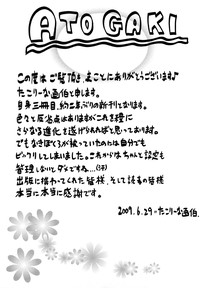 ATOGAKI
この度は ご覧頂き、まことにありがとうございます♪
たこりーな画伯と申します。
自身三冊目、約二年ぶりの新刊となります。
色々と反省点はありますがこれを糧に
さらなる進化を遂げられればと思っております。
でもなきぼくろが被っていたのには自分でも
ビックリしてしまいました。これからはちゃんと設定も
管理しないとダメですね…(汗)
出版に携わってくれた皆様、そして読者の皆様
本当に本当に感謝です。
2009.6.29 - たこりーな画伯.